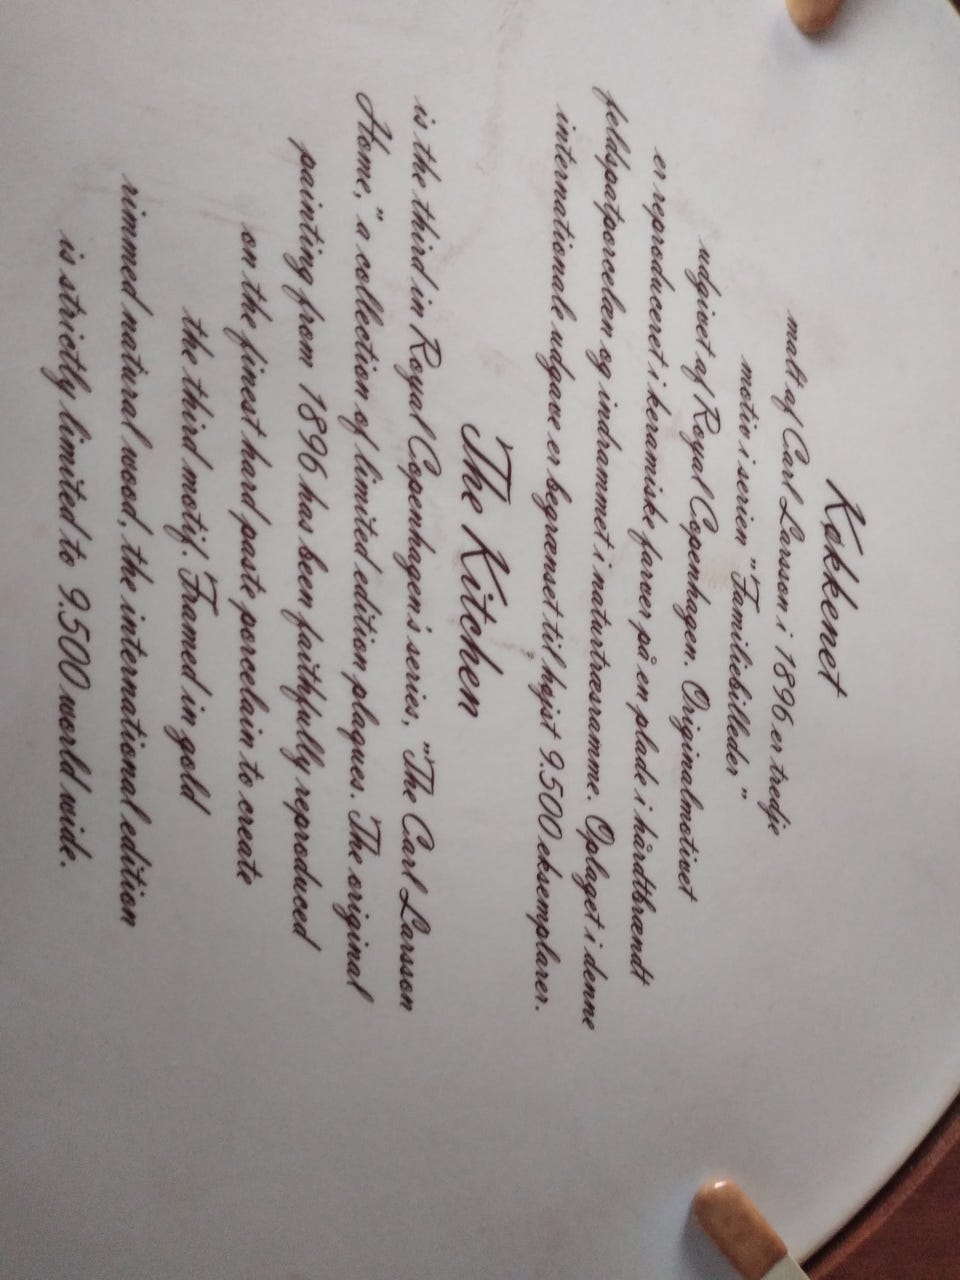 Køkkenet
malt af Carl Larsson i 1896 er tredje
motiv i serien "Familiebilleder"
udgivet af Royal Copenhagen. Originalmotivet
er reproduceret i keramiske farver på en plade i hårdtbrændt
feldspatporcelæn og indrammet i naturtræsramme. Oplaget i denne
internationale udgave er begrænset til højst 9.500 eksemplarer.
The Kitchen
is the third in Royal Copenhagen's series, "The Carl Larsson
Home," a collection of limited edition plaques. The original
painting from 1896 has been faithfully reproduced
on the finest hard paste porcelain to create
the third motif. Framed in gold
rimmed natural wood, the international edition
is strictly limited to 9.500 world wide.